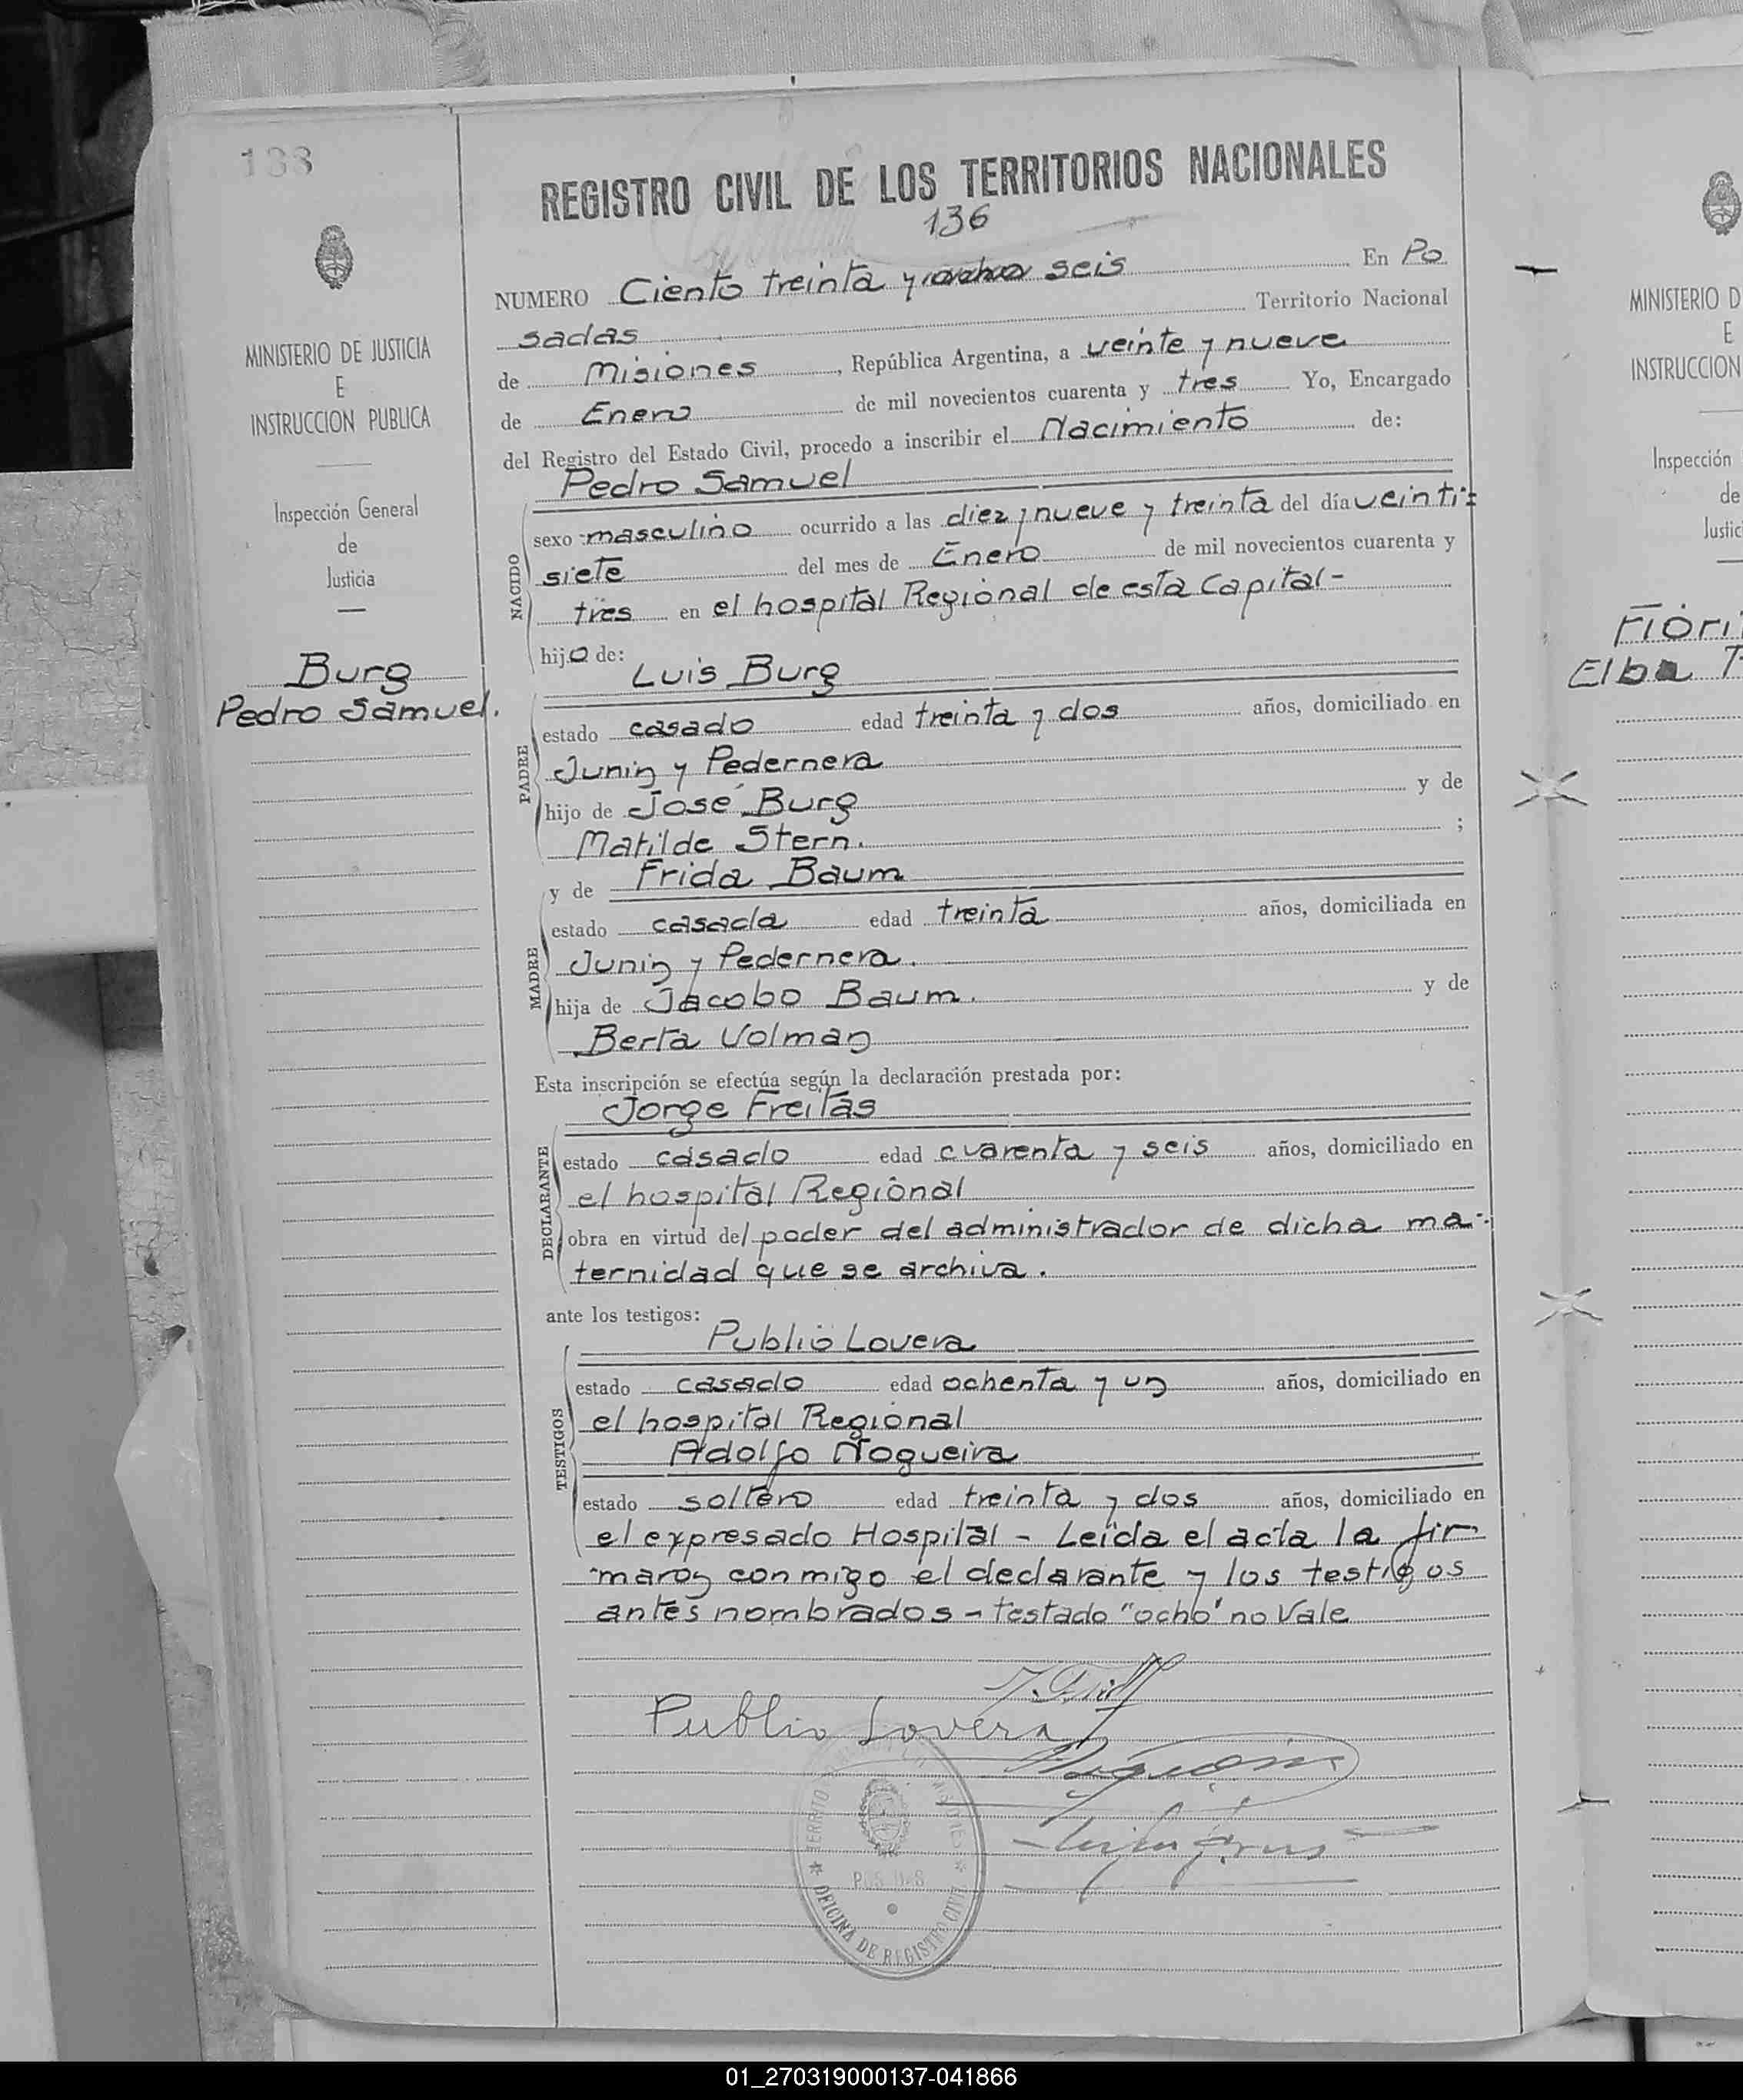 133
REGISTRO CIVIL DE LOS TERRITORIOS NACIONALES
136
NUMERO Ciento treinta y ocho seis En Po
sadas Territorio Nacional
de Misiones, República Argentina, a veinte y nueve
de Enero de mil novecientos cuarenta y tres Yo, Encargado
del Registro del Estado Civil, procedo a inscribir el Nacimiento de:
MINISTERIO DE JUSTICIA
E
INSTRUCCION PUBLICA
Inspección General
de
Justicia
Burg
Pedro Samuel.
NACIDO
Pedro Samuel
sexo masculino ocurrido a las diez y nueve y treinta del día veinti=
siete del mes de Enero de mil novecientos cuarenta y
tres en el hospital Regional de esta Capital-
hijo de:
PADRE
Luis Burg
estado casado edad treinta y dos años, domiciliado en
Junin y Pedernera
hijo de José Burg y de
Matilde Stern. ;
MADRE
y de Frida Baum
estado casada edad treinta años, domiciliada en
Junin y Pedernera.
hija de Jacobo Baum. y de
Berta Volman
Esta inscripción se efectúa según la declaración prestada por:
DECLARANTE
Jorge Freitas
estado casado edad cuarenta y seis años, domiciliado en
el hospital Regional
obra en virtud del poder del administrador de dicha ma-
ternidad que se archiva.
ante los testigos:
TESTIGOS
Publio Lovera
estado casado edad ochenta y un años, domiciliado en
el hospital Regional
Adolfo Nogueira
estado soltero edad treinta y dos años, domiciliado en
el expresado Hospital - Leída el acta la fir
maron conmigo el declarante y los testigos
antes nombrados - testado "ocho" no Vale
Publio Lovera
OFICINA DE REGISTRO CIVIL
MINISTERIO D
E
INSTRUCCION
Inspección
de
Justici
Fiori
Elba T
01_270319000137-041866